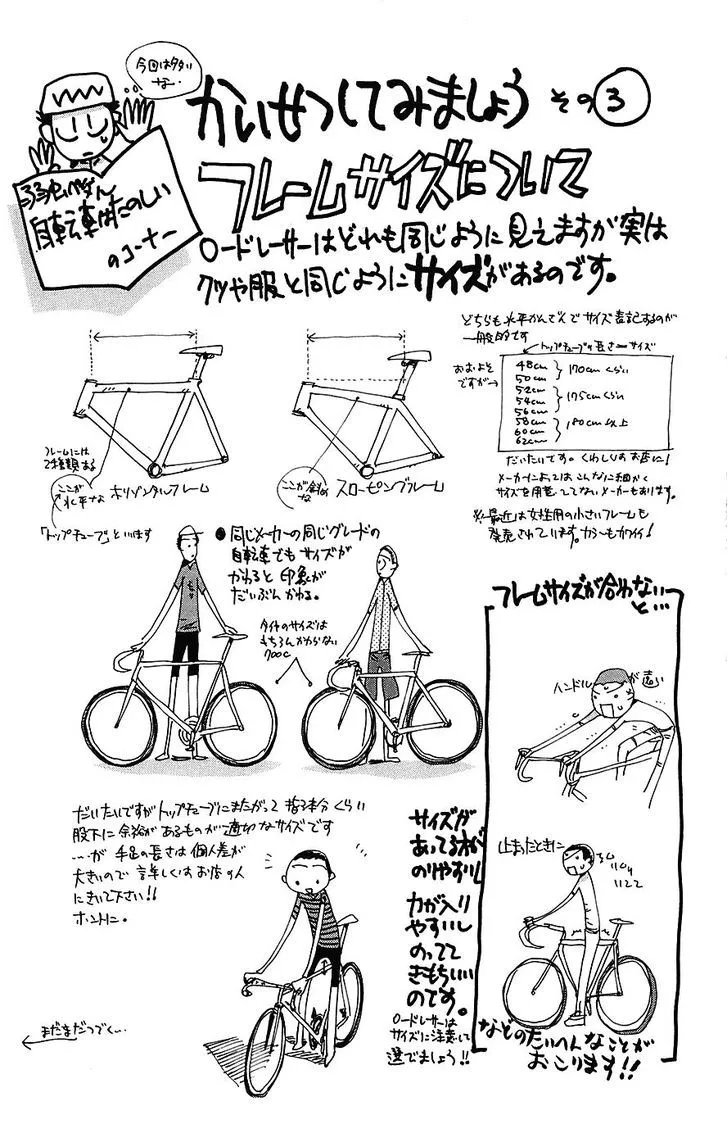 今回はタタい
な…
かいせつしてみましょう その③
弱虫ペダル
自転車はたのしい
のコーナー
フレームサイズについて
ロードレーサーはどれも同じように見えますが実は
クツや服と同じようにサイズがあるのです。
フレームには
2種類ある
ここが
水平な
ホリゾンタルフレーム
ここが斜め
な
スローピングフレーム
「トップチューブ」といいます
どちらも水平かんさんでサイズ表記するのが
一般的です
トップチューブの長さ=サイズ
おおよそ
ですが→
48cm
50cm
170cmくらい
52cm
54cm
56cm
175cmくらい
58cm
60cm
62cm
180cm以上
だいたいです。くわしくはお店に!
メーカーによってはこんなに細かく
サイズを用意してないメーカーもあります。
※最近は女性用の小さいフレームも
発売されています。カラーもカワイイ!
●同じメーカーの同じグレードの
自転車でもサイズが
かわると印象が
だいぶんかわる。
タイヤのサイズは
もちろんかわらない
700c
フレームサイズが合わない
と…
ハンドルが遠い
止まったときに
などのたいへんなことが
おこります!!
だいたいですがトップチューブにまたがって指3本分くらい
股下に余裕があるものが適切なサイズです
…が 手足の長さは個人差が
大きいので 詳しくはお店の人
にきいて下さい!!
ホントに。
サイズが
あってる方が
のりやすいし
力が入り
やすいし
のってて
きもちいい
のです。
ロードレーサーは
サイズに注意して
選びましょう!!
まだまだつづく…